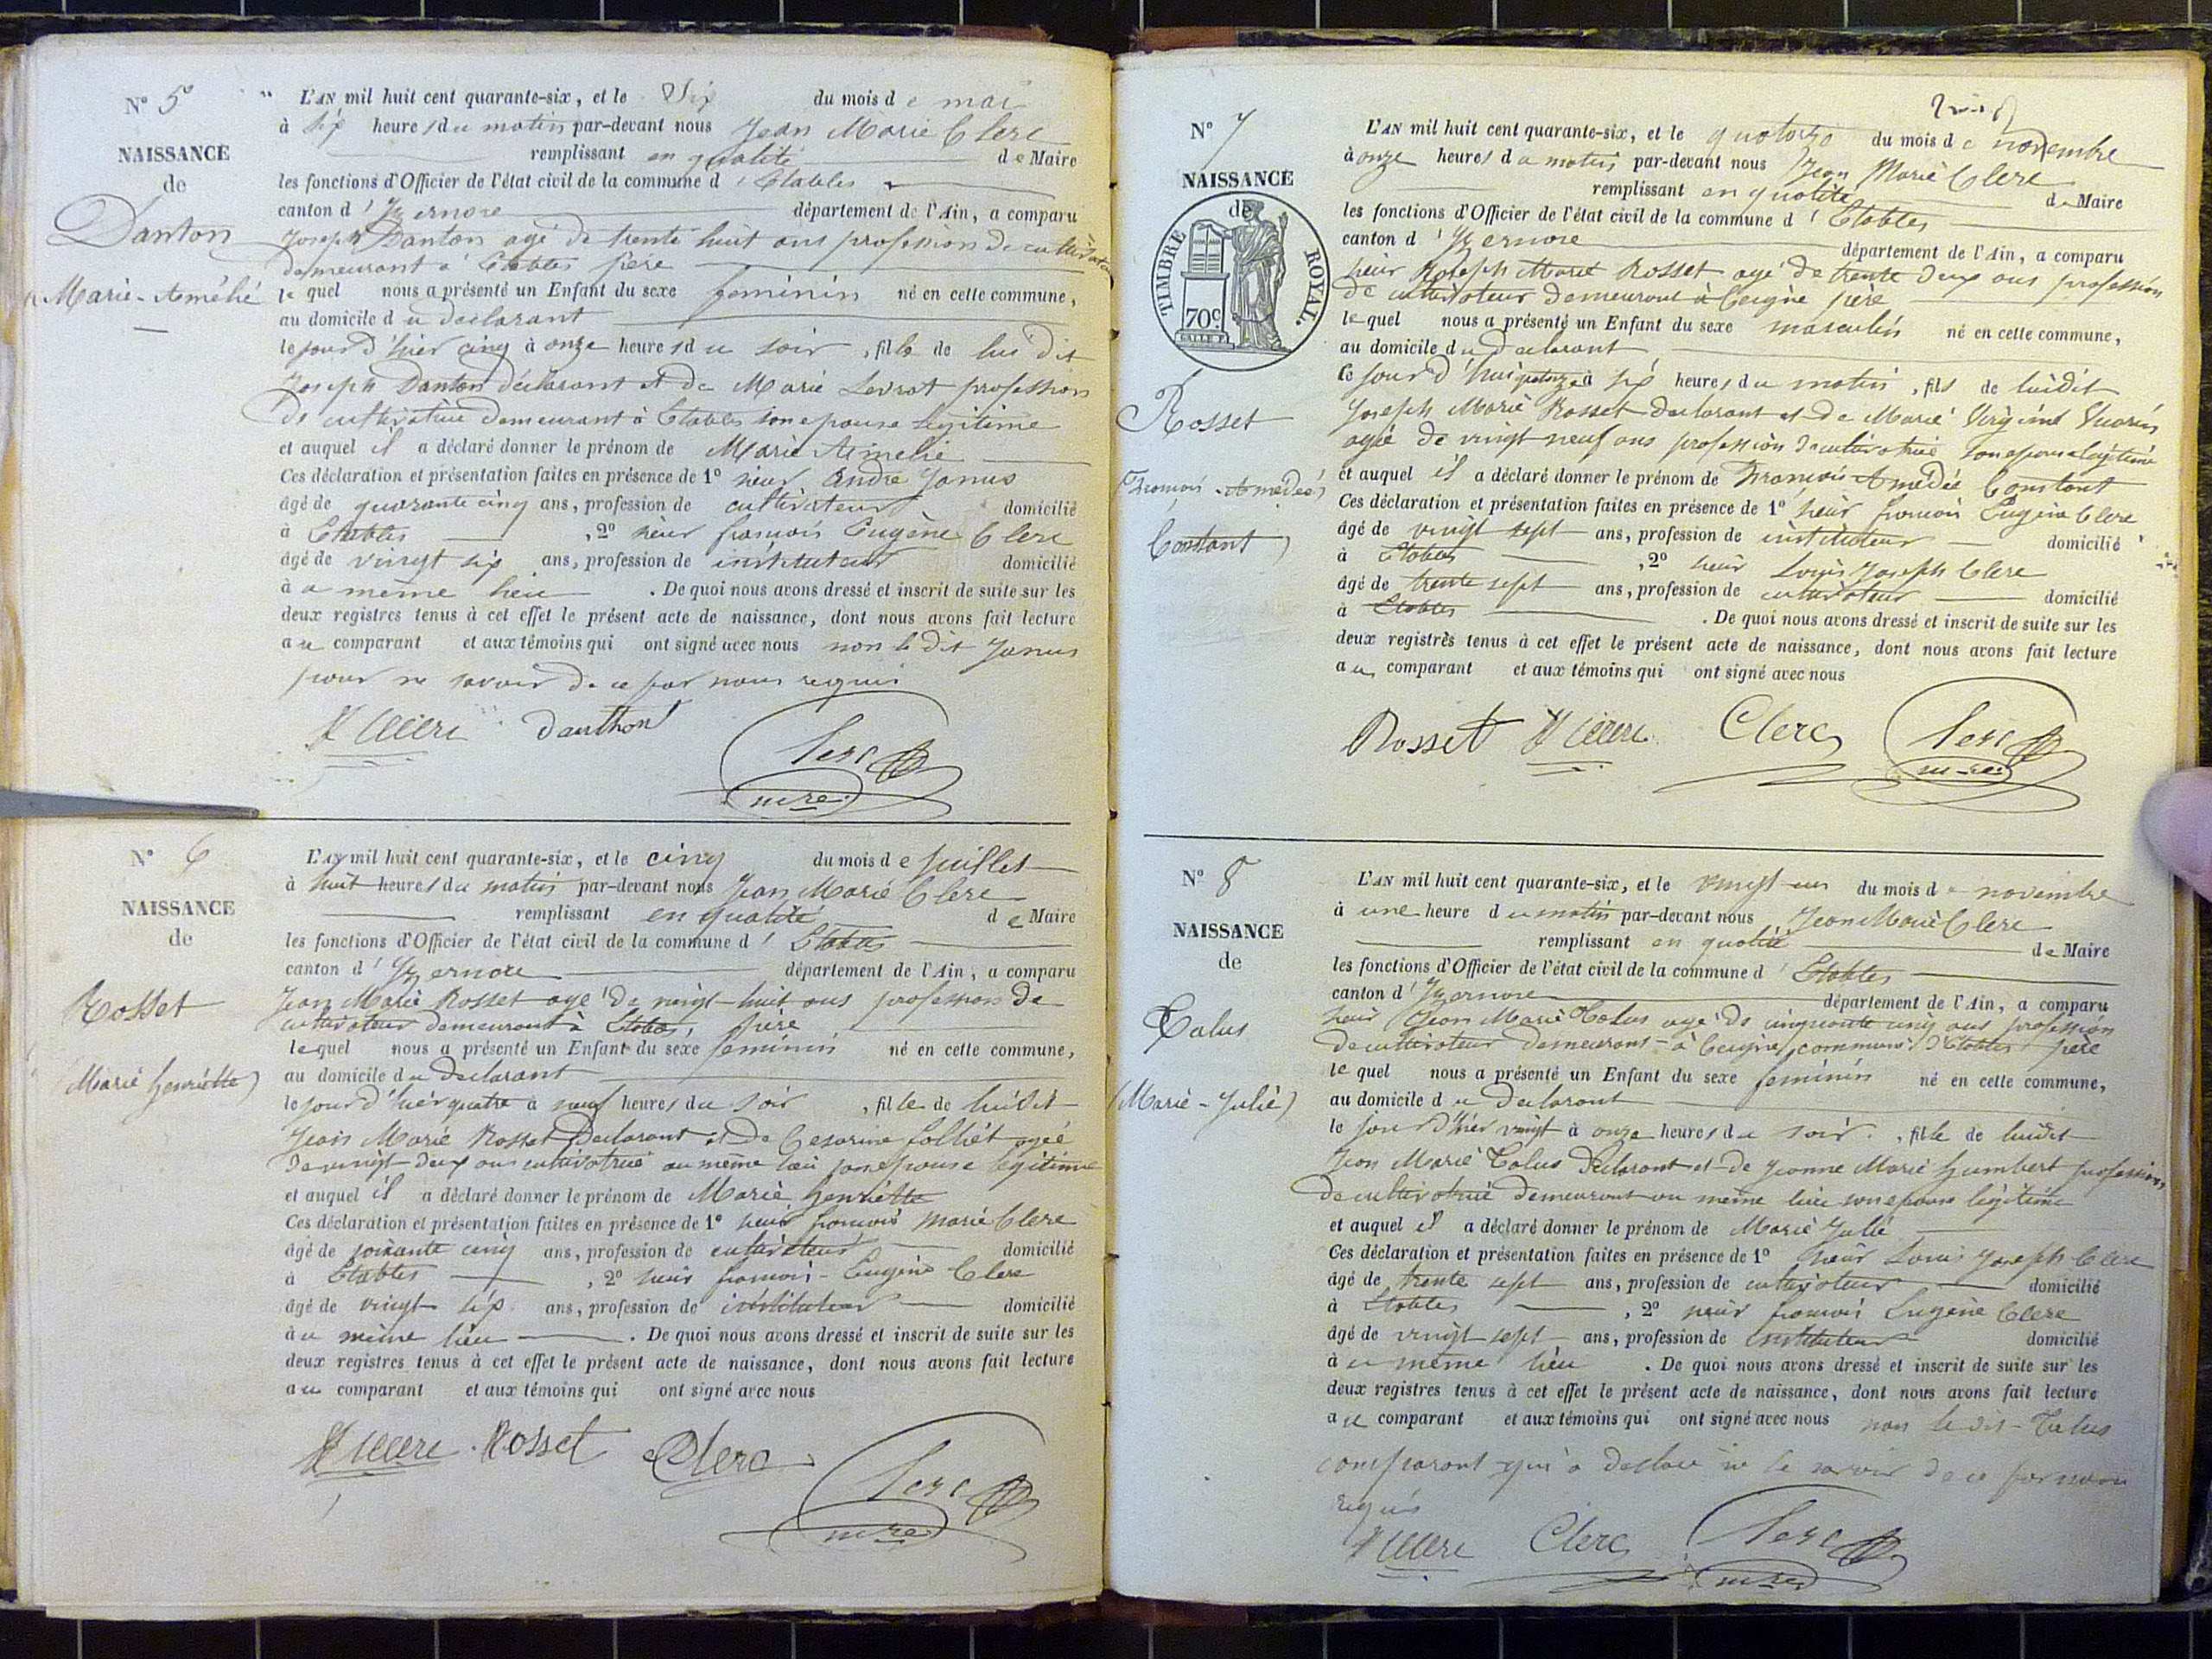 N° 5
NAISSANCE
de
Danton
Marie-Amélie
L'AN mil huit cent quarante-six, et le Six du mois de mai
à six heures du matin par-devant nous Jean Marie Clerc
remplissant en qualité de Maire
les fonctions d'Officier de l'état civil de la commune d'Etables
canton d'Izernore département de l'Ain, a comparu
Joseph Danton agé de trente huit ans profession de cultivateur
demeurant à Etables père
le quel nous a présenté un Enfant du sexe feminin né en cette commune,
au domicile du declarant
le jour d'hier cinq à onze heures du soir, fille de lui dit
Joseph Danton déclarant et de Marie Levrat profession
de cultivatrice demeurant à Etables son epouse legitime
et auquel il a déclaré donner le prénom de Marie Amelie
Ces déclaration et présentation faites en présence de 1° sieur André Janus
âgé de quarante cinq ans, profession de cultivateur domicilié
à Etables, 2° sieur françois Eugène Clerc
âgé de vingt six ans, profession de instituteur domicilié
au même lieu. De quoi nous avons dressé et inscrit de suite sur les
deux registres tenus à cet effet le présent acte de naissance, dont nous avons fait lecture
au comparant et aux témoins qui ont signé avec nous non le dit Janus
pour ne savoir de ce par nous requis
Clerc danthon Clerc
mre
N° 6
NAISSANCE
de
Rosset
(Marie henriette)
L'AN mil huit cent quarante-six, et le cinq du mois de juillet
à huit heures du matin par-devant nous Jean Marie Clerc
remplissant en qualité de Maire
les fonctions d'Officier de l'état civil de la commune d'Etables
canton d'Izernore département de l'Ain, a comparu
Jean Marie Rosset age de vingt-huit ans profession de
cultivateur demeurant à Etables, père
lequel nous a présenté un Enfant du sexe feminin né en cette commune,
au domicile du declarant
le jour d'hier quatre à neuf heures du soir, fille de lui dit
Jean Marie Rosset declarant et de Cesarine Folliet agée
de vingt-deux ans cultivatrice au même lieu son epouse legitime
et auquel il a déclaré donner le prénom de Marie henriette
Ces déclaration et présentation faites en présence de 1° sieur françois marie Clerc
âgé de soixante cinq ans, profession de cultivateur domicilié
à Etables, 2° sieur françois-Eugène Clerc
âgé de vingt six ans, profession de instituteur domicilié
au même lieu. De quoi nous avons dressé et inscrit de suite sur les
deux registres tenus à cet effet le présent acte de naissance, dont nous avons fait lecture
au comparant et aux témoins qui ont signé avec nous
Clerc Rosset Clerc Clerc
mre
N° 7
NAISSANCE
de
TIMBRE ROYAL.
70c.
Rosset
(François-Amédée)
Constant)
L'AN mil huit cent quarante-six, et le quatorze du mois de novembre
à onze heures du matin par-devant nous Jean Marie Clerc
remplissant en qualité de Maire
les fonctions d'Officier de l'état civil de la commune d'Etables
canton d'Izernore département de l'Ain, a comparu
sieur Joseph Marie Rosset agé de trente deux ans profession
de cultivateur demeurant à Ceigne père
lequel nous a présenté un Enfant du sexe masculin né en cette commune,
au domicile du declarant
le jour d'hui quatorze à six heures du matin, fils de lui dit
Joseph Marie Rosset declarant et de Marie Virginie
agée de vingt neuf ans profession de cultivatrice son epouse legitime
et auquel il a déclaré donner le prénom de François Amédée Constant
Ces déclaration et présentation faites en présence de 1° sieur françois Eugène Clerc
âgé de vingt sept ans, profession de instituteur domicilié
à Etables, 2° sieur Louis Joseph Clerc
âgé de trente sept ans, profession de cultivateur domicilié
à Etables. De quoi nous avons dressé et inscrit de suite sur les
deux registrès tenus à cet effet le présent acte de naissance, dont nous avons fait lecture
au comparant et aux témoins qui ont signé avec nous
Rosset Clerc Clerc Clerc
mre
N° 8
NAISSANCE
de
Talus
(Marie-Julie)
L'AN mil huit cent quarante-six, et le vingt-un du mois de novembre
à une heure du matin par-devant nous Jean Marie Clerc
remplissant en qualité de Maire
les fonctions d'Officier de l'état civil de la commune d'Etables
canton d'Izernore département de l'Ain, a comparu
sieur Jean Marie Talus agé de cinquante cinq ans profession
de cultivateur demeurant à Ceigne, commune d'Etables père
lequel nous a présenté un Enfant du sexe feminin né en cette commune,
au domicile du declarant
le jour d'hier vingt à onze heures du soir, fille de lui dit
Jean Marie Talus declarant et de Jeanne Marie humbert profession
de cultivatrice demeurant au même lieu son epouse legitime
et auquel il a déclaré donner le prénom de Marie Julie
Ces déclaration et présentation faites en présence de 1° sieur Louis Joseph Clerc
âgé de trente sept ans, profession de cultivateur domicilié
à Etables, 2° sieur françois Eugène Clerc
âgé de vingt sept ans, profession de instituteur domicilié
au même lieu. De quoi nous avons dressé et inscrit de suite sur les
deux registres tenus à cet effet le présent acte de naissance, dont nous avons fait lecture
au comparant et aux témoins qui ont signé avec nous non le dit-Talus
comparant qui a declaré ne le savoir de ce par nous
requis
Clerc Clerc Clerc
mre